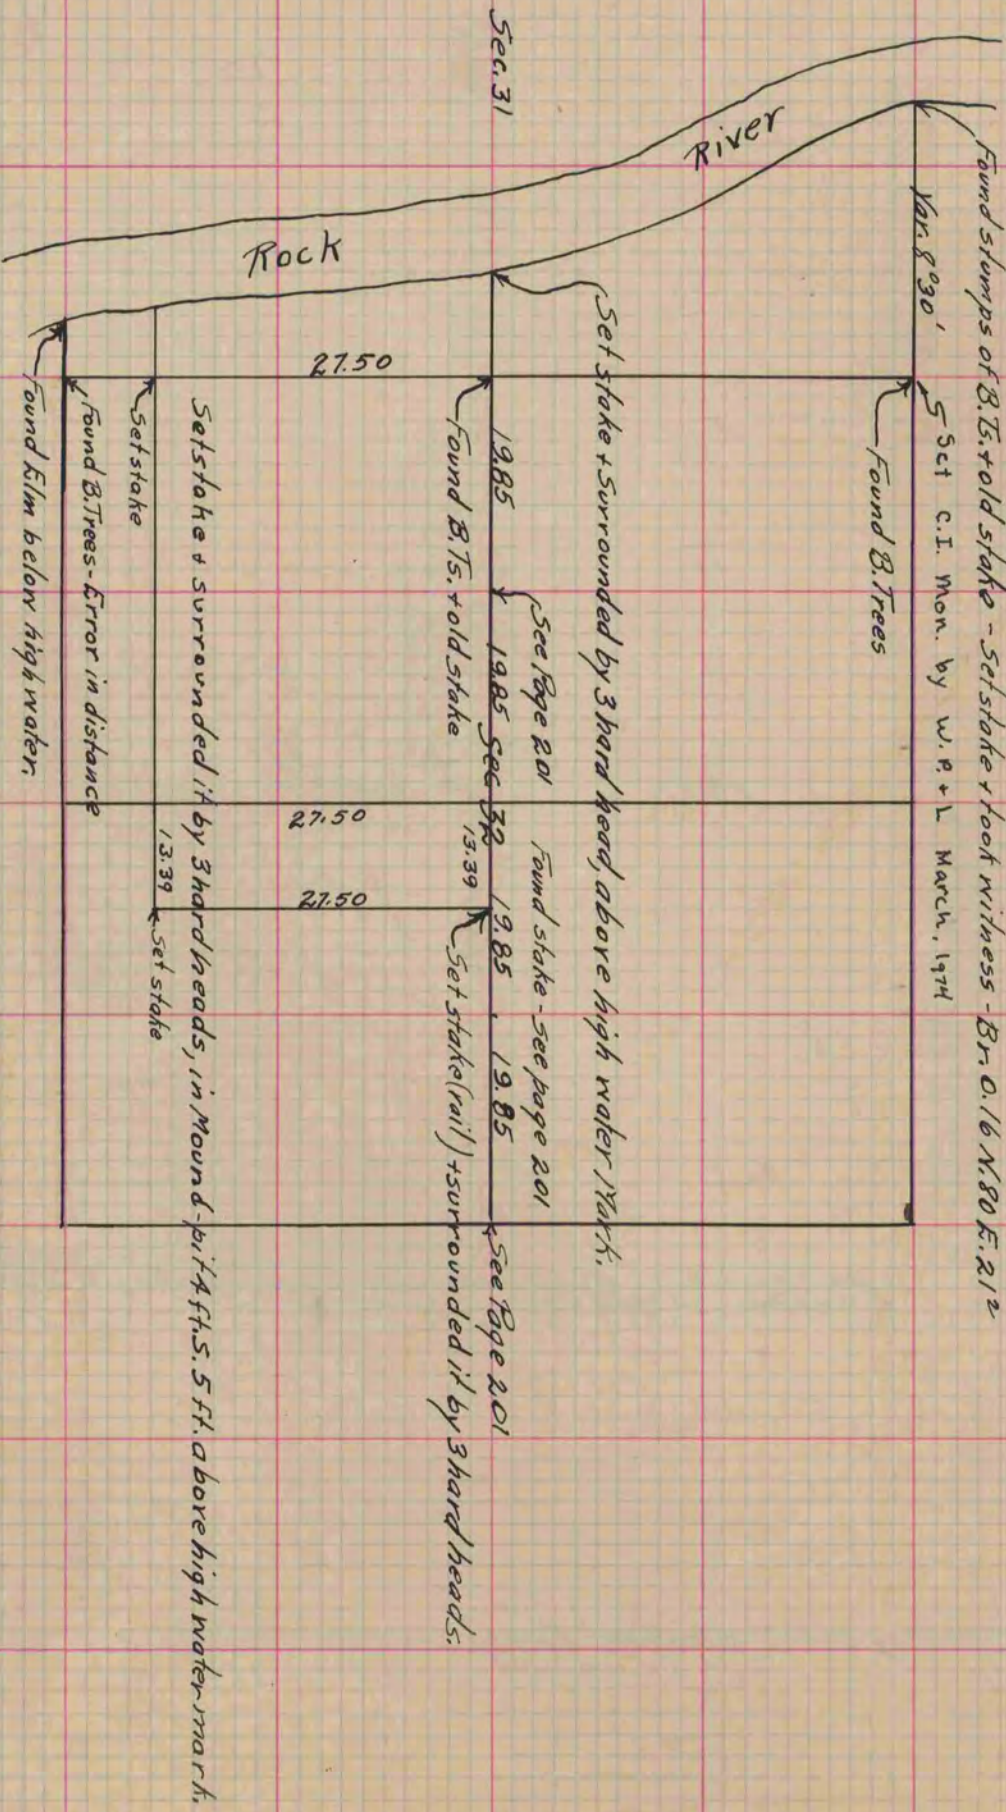 Found stumps of B.Ts. + old stake - Set stake + took witness - Br. O. 16 N. 80 E. 21²
Set C.I. Mon. by W.P. + L March, 1974
Var. 8°30'
Found B. Trees
River
Set stake + Surrounded by 3 hard head, above high water Mark.
See Page 201
Found stake - See page 201
Sec. 31
19.85
19.85
Sec 32
19.85
19.85
See Page 201
13.39
Found B.Ts. + old stake
Set stake (rail) + surrounded it by 3 hard heads.
27.50
27.50
27.50
Rock
Set stake + surrounded it by 3 hard heads, in Mound - pit 4 ft. S. 5 ft. above high water mark.
13.39
Set stake
Set stake
Found B. Trees - Error in distance
Found Elm below high water.